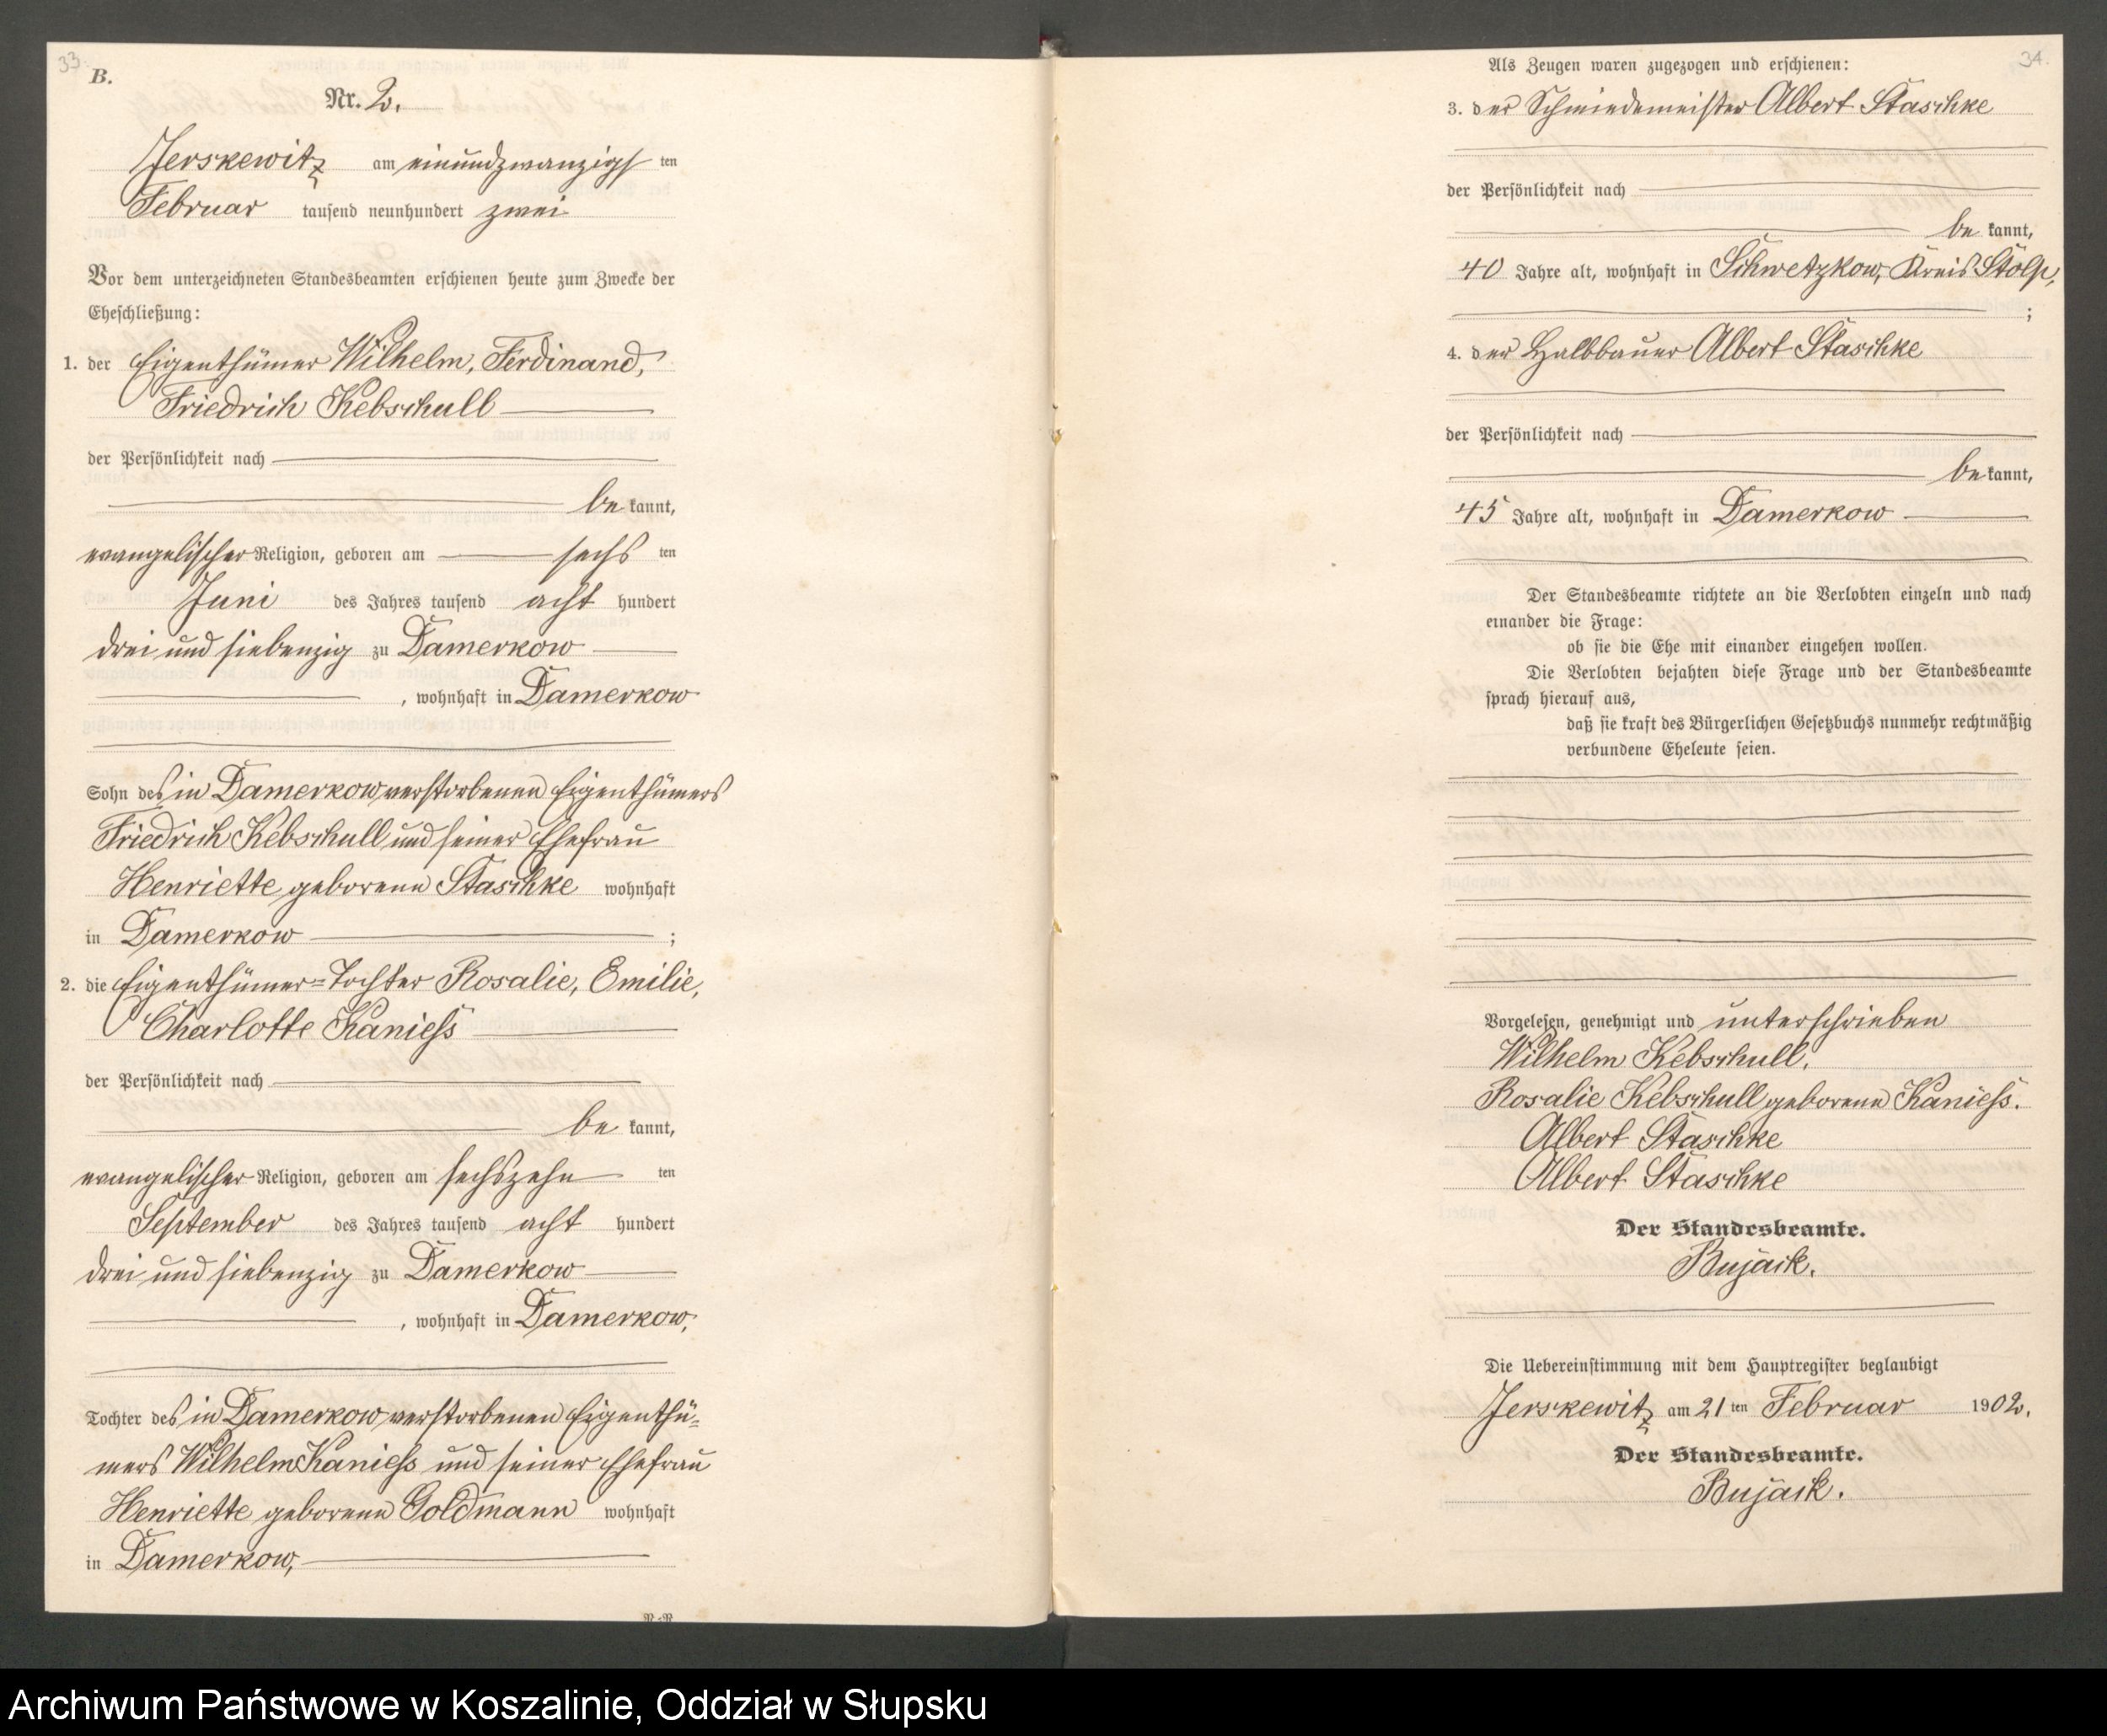 33.
B.
Nr. 2.
Jerskewitz am einundzwanzigs ten
Februar tausend neunhundert zwei
Vor dem unterzeichneten Standesbeamten erschienen heute zum Zwecke der
Eheschließung:
1. der Eigenthümer Wilhelm, Ferdinand,
Friedrich Kebschull
der Persönlichkeit nach
be kannt,
evangelischer Religion, geboren am sechs ten
Juni des Jahres tausend acht hundert
drei und siebenzig zu Damerkow
, wohnhaft in Damerkow
Sohn des in Damerkow verstorbenen Eigenthümers
Friedrich Kebschull und seiner Ehefrau
Henriette geborene Staschke wohnhaft
in Damerkow ;
2. die Eigenthümer=Tochter Rosalie, Emilie,
Charlotte Kaniess
der Persönlichkeit nach
be kannt,
evangelischer Religion, geboren am sechszehn ten
September des Jahres tausend acht hundert
drei und siebenzig zu Damerkow
, wohnhaft in Damerkow,
Tochter des in Damerkow verstorbenen Eigenthü=
mers Wilhelm Kaniess und seiner Ehefrau
Henriette geborene Goldmann wohnhaft
in Damerkow,
34.
Als Zeugen waren zugezogen und erschienen:
3. der Schmiedemeister Albert Staschke
der Persönlichkeit nach
be kannt,
40 Jahre alt, wohnhaft in Schwetzkow, Kreis Stolp,
;
4. der Halbbauer Albert Staschke
der Persönlichkeit nach
be kannt,
45 Jahre alt, wohnhaft in Damerkow
Der Standesbeamte richtete an die Verlobten einzeln und nach
einander die Frage:
ob sie die Ehe mit einander eingehen wollen.
Die Verlobten bejahten diese Frage und der Standesbeamte
sprach hierauf aus,
daß sie kraft des Bürgerlichen Gesetzbuchs nunmehr rechtmäßig
verbundene Eheleute seien.
Vorgelesen, genehmigt und unterschrieben
Wilhelm Kebschull.
Rosalie Kebschull geborene Kaniess.
Albert Staschke
Albert Staschke
Der Standesbeamte.
Bujack.
Die Uebereinstimmung mit dem Hauptregister beglaubigt
Jerskewitz am 21 ten Februar 1902.
Der Standesbeamte.
Bujack.
Archiwum Państwowe w Koszalinie, Oddział w Słupsku